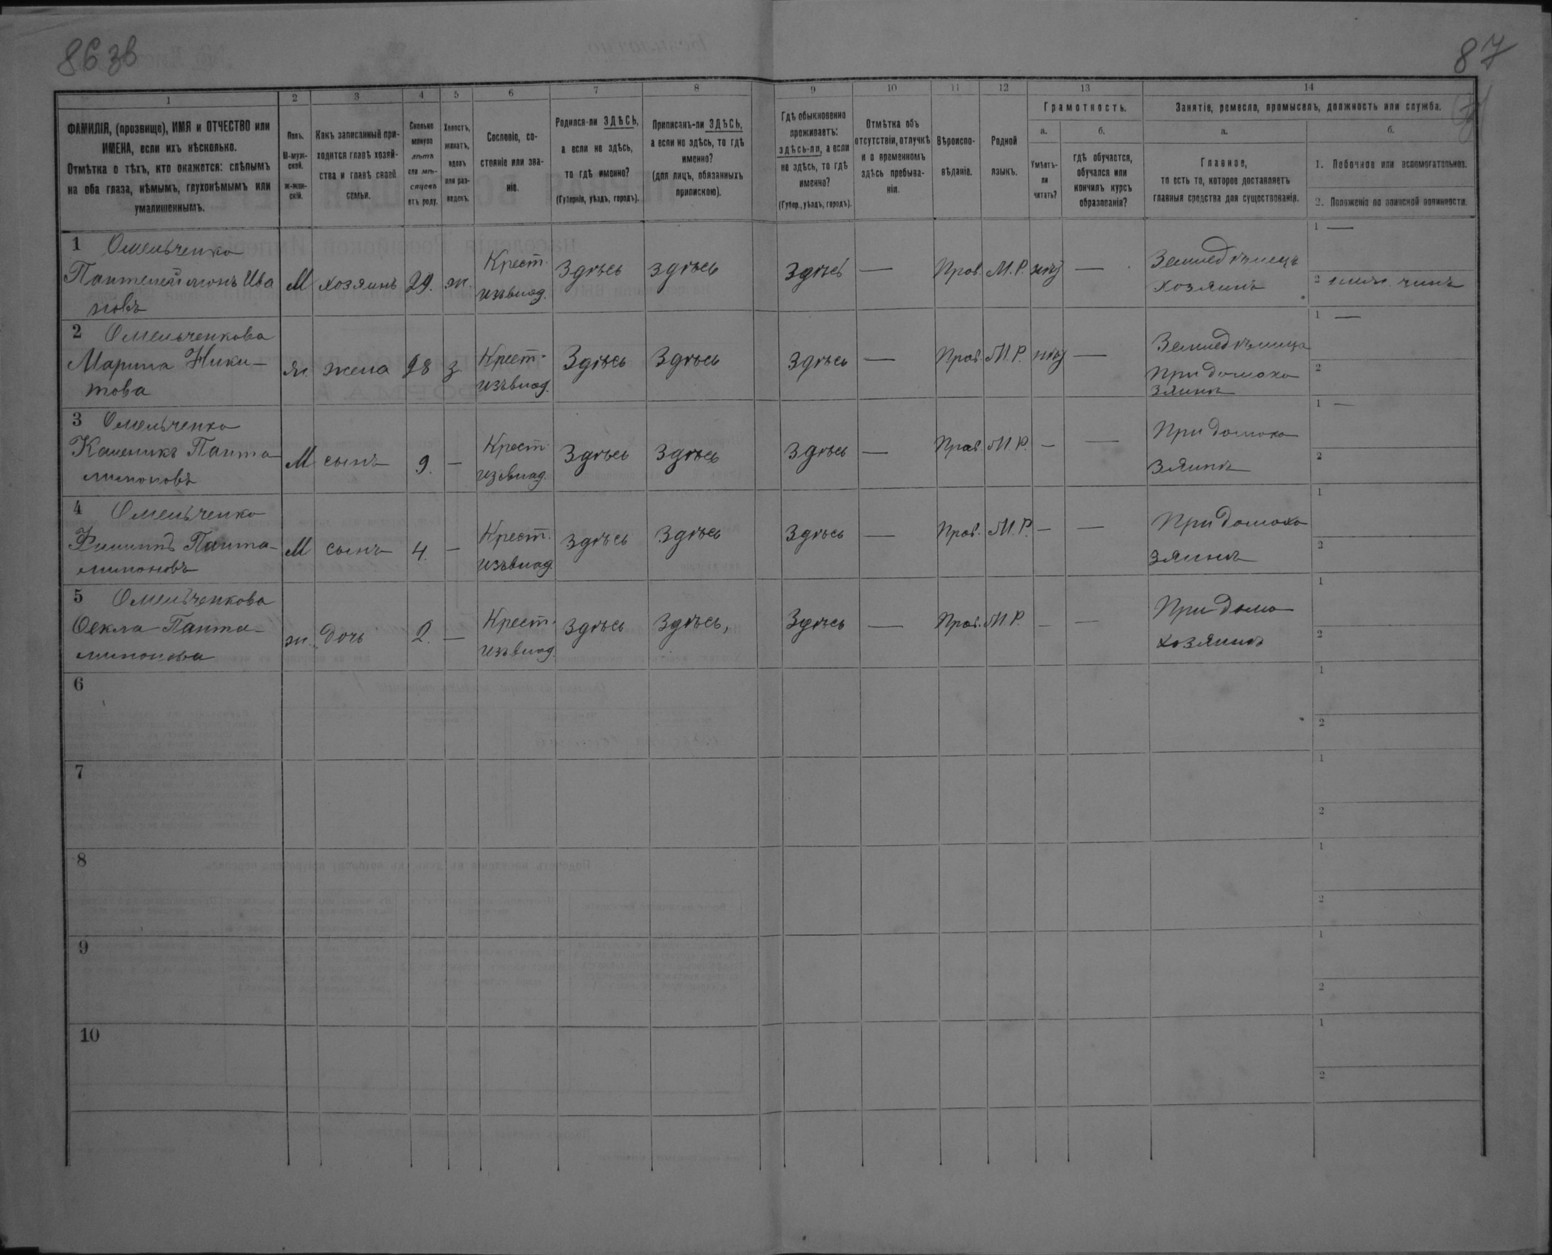 86 зв
87
1
2
3
4
5
6
7
8
9
10
11
12
13
14
ФАМИЛІЯ, (прозвище), ИМЯ и ОТЧЕСТВО или
ИМЕНА, если ихъ нѣсколько.
Отмѣтка о тѣхъ, кто окажется: слѣпымъ
на оба глаза, нѣмымъ, глухонѣмымъ или
умалишеннымъ.
Полъ.
М-муж-
ской.
ж-жен-
скій.
Какъ записанный при-
ходится главѣ хозяй-
ства и главѣ своей
семьи.
Сколько
минуло
лѣтъ
или мѣ-
сяцевъ
отъ роду.
Холостъ,
женатъ,
вдовъ
или раз-
веденъ.
Сословіе, со-
стояніе или зва-
ніе.
Родился-ли ЗДѢСЬ,
а если не здѣсь,
то гдѣ именно?
(Губернія, уѣздъ, городъ).
Приписанъ-ли ЗДѢСЬ,
а если не здѣсь, то гдѣ
именно?
(для лицъ, обязанныхъ
припискою).
Гдѣ обыкновенно
проживаетъ:
здѣсь-ли, а если
не здѣсь, то гдѣ
именно?
(Губер., уѣздъ, городъ).
Отмѣтка объ
отсутствіи, отлучкѣ
и о временномъ
здѣсь пребыва-
ніи.
Вѣроиспо-
вѣданіе.
Родной
языкъ.
Грамотность.
а.
Умѣетъ-
ли
читать?
б.
гдѣ обучается,
обучался или
кончилъ курсъ
образованія?
Занятіе, ремесло, промыселъ, должность или служба.
а.
Главное,
то есть то, которое доставляетъ
главныя средства для существованія.
б.
1. Побочное или вспомогательное.
2. Положеніе по воинской повинности.
1 Омельченко
Пантелеймонъ Ива
новъ
М хозяинъ 29. ж. Крест.
изъ влад. Здѣсь здѣсь здѣсь — Прав. М.Р. нѣтъ — Земледѣлецъ
хозяинъ 1 —
2
2 Омельченкова
Марина Ники-
това
ж жена 28 з Крест-
изъ влад. Здѣсь Здѣсь Здѣсь — Прав. М.Р. нѣтъ — Земледѣлица
при домохо
зяинѣ 1 —
2
3 Омельченко
Панта
лимоновъ
М сынъ 9. — Крест.
изъ влад. Здѣсь Здѣсь Здѣсь — Прав. М.Р. — — При домохо
зяинѣ 1 —
2
4 Омельченко
Филиппъ Панта-
лимоновъ
М сынъ 4. — Крест.
изъ влад. Здѣсь Здѣсь Здѣсь — Прав. М.Р. — — При домохо
зяинѣ 1
2
5 Омельченкова
Ѳекла Панта-
лимонова
ж. дочь 2. — Крест.
изъ влад. Здѣсь Здѣсь, Здѣсь — Прав. М.Р. — — При домо
хозяинѣ 1
2
6
1
2
7
1
2
8
1
2
9
1
2
10
1
2